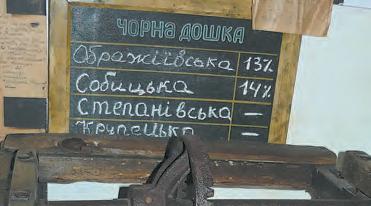 ЧОРНА ДОШКА
Ображіївська 13%
Собицька 14%
Степанівська —
Крупецька —